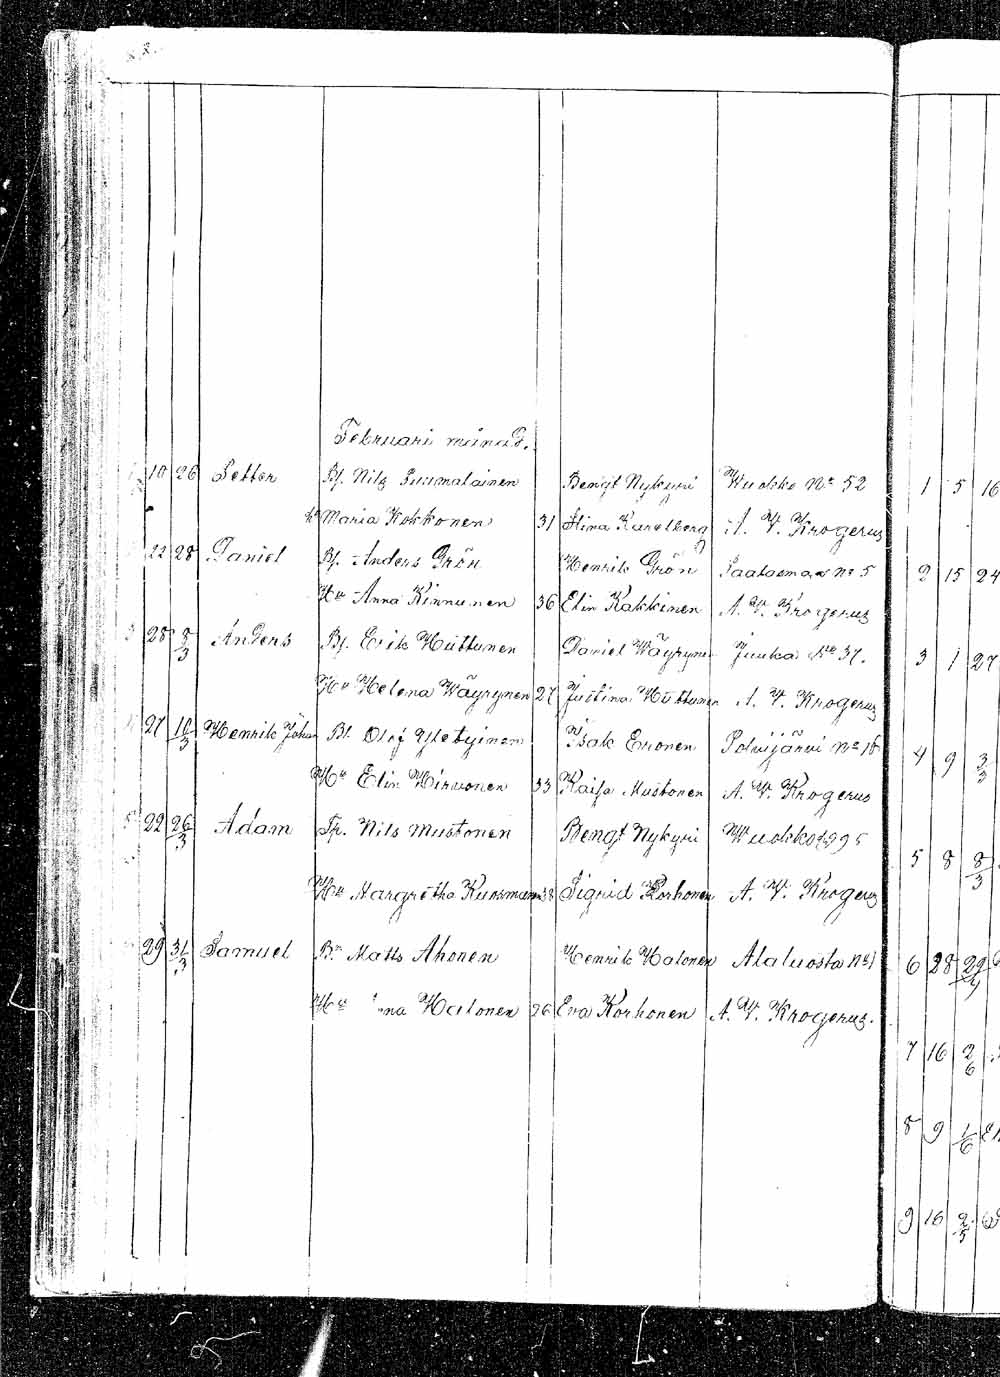 Februari månad.
10 26 Petter Bf. Nils Puumalainen Bengt Nykyri Wuokko No 52
Maria Kokkonen 31 Stina Karelberg A. W. Krogerus
22 28 Daniel Bf. Anders Grön Henrik Grön No 5
Hu Anna Kinnunen 36 Elin Kakkinen A. W. Krogerus
3 28 8/3 Anders Bf. Erik Hüttunen Daniel Wäyrynen Juuka No 37.
Hu Helena Wäyrynen 27 Justina Hüttunen A. W. Krogerus
27 16/3 Henrik Johan Bf. Olof Isak Eronen Polvijärvi No 18
Hu Elin Hirvonen 33 Kaisa Mustonen A. W. Krogerus
5 22 26/3 Adam Tp. Nils Mustonen Bengt Nykyri Wuokko
Hu Margretha 38 Sigrid Korhonen A. W. Krogerus
29 31/3 Samuel Bn Matts Ahonen Henrik Halonen Alaluosta No 1
Hu Halonen 26 Eva Korhonen A. W. Krogerus.
1 5 16
2 15 24
3 1 27
4 9 3/3
5 8 8/3
6 28 29/4
7 16 2/6
8 9 1/6
9 16 2/5